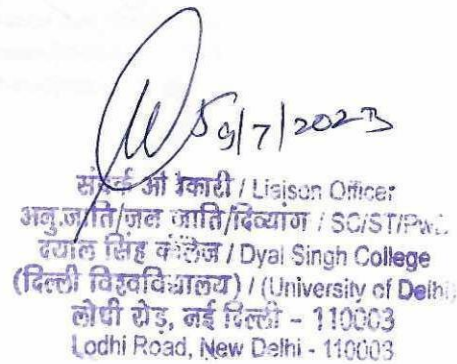 9/7/2023
संपर्क अधिकारी / Liaison Officer
अनु.जाति/जन जाति/दिव्यांग / SC/ST/PwD
दयाल सिंह कॉलेज / Dyal Singh College
(दिल्ली विश्वविद्यालय) / (University of Delhi)
लोधी रोड़, नई दिल्ली - 110003
Lodhi Road, New Delhi - 110003